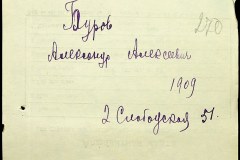 Буров
270
Александр Алексеевич
1909
2 Слободская 51.